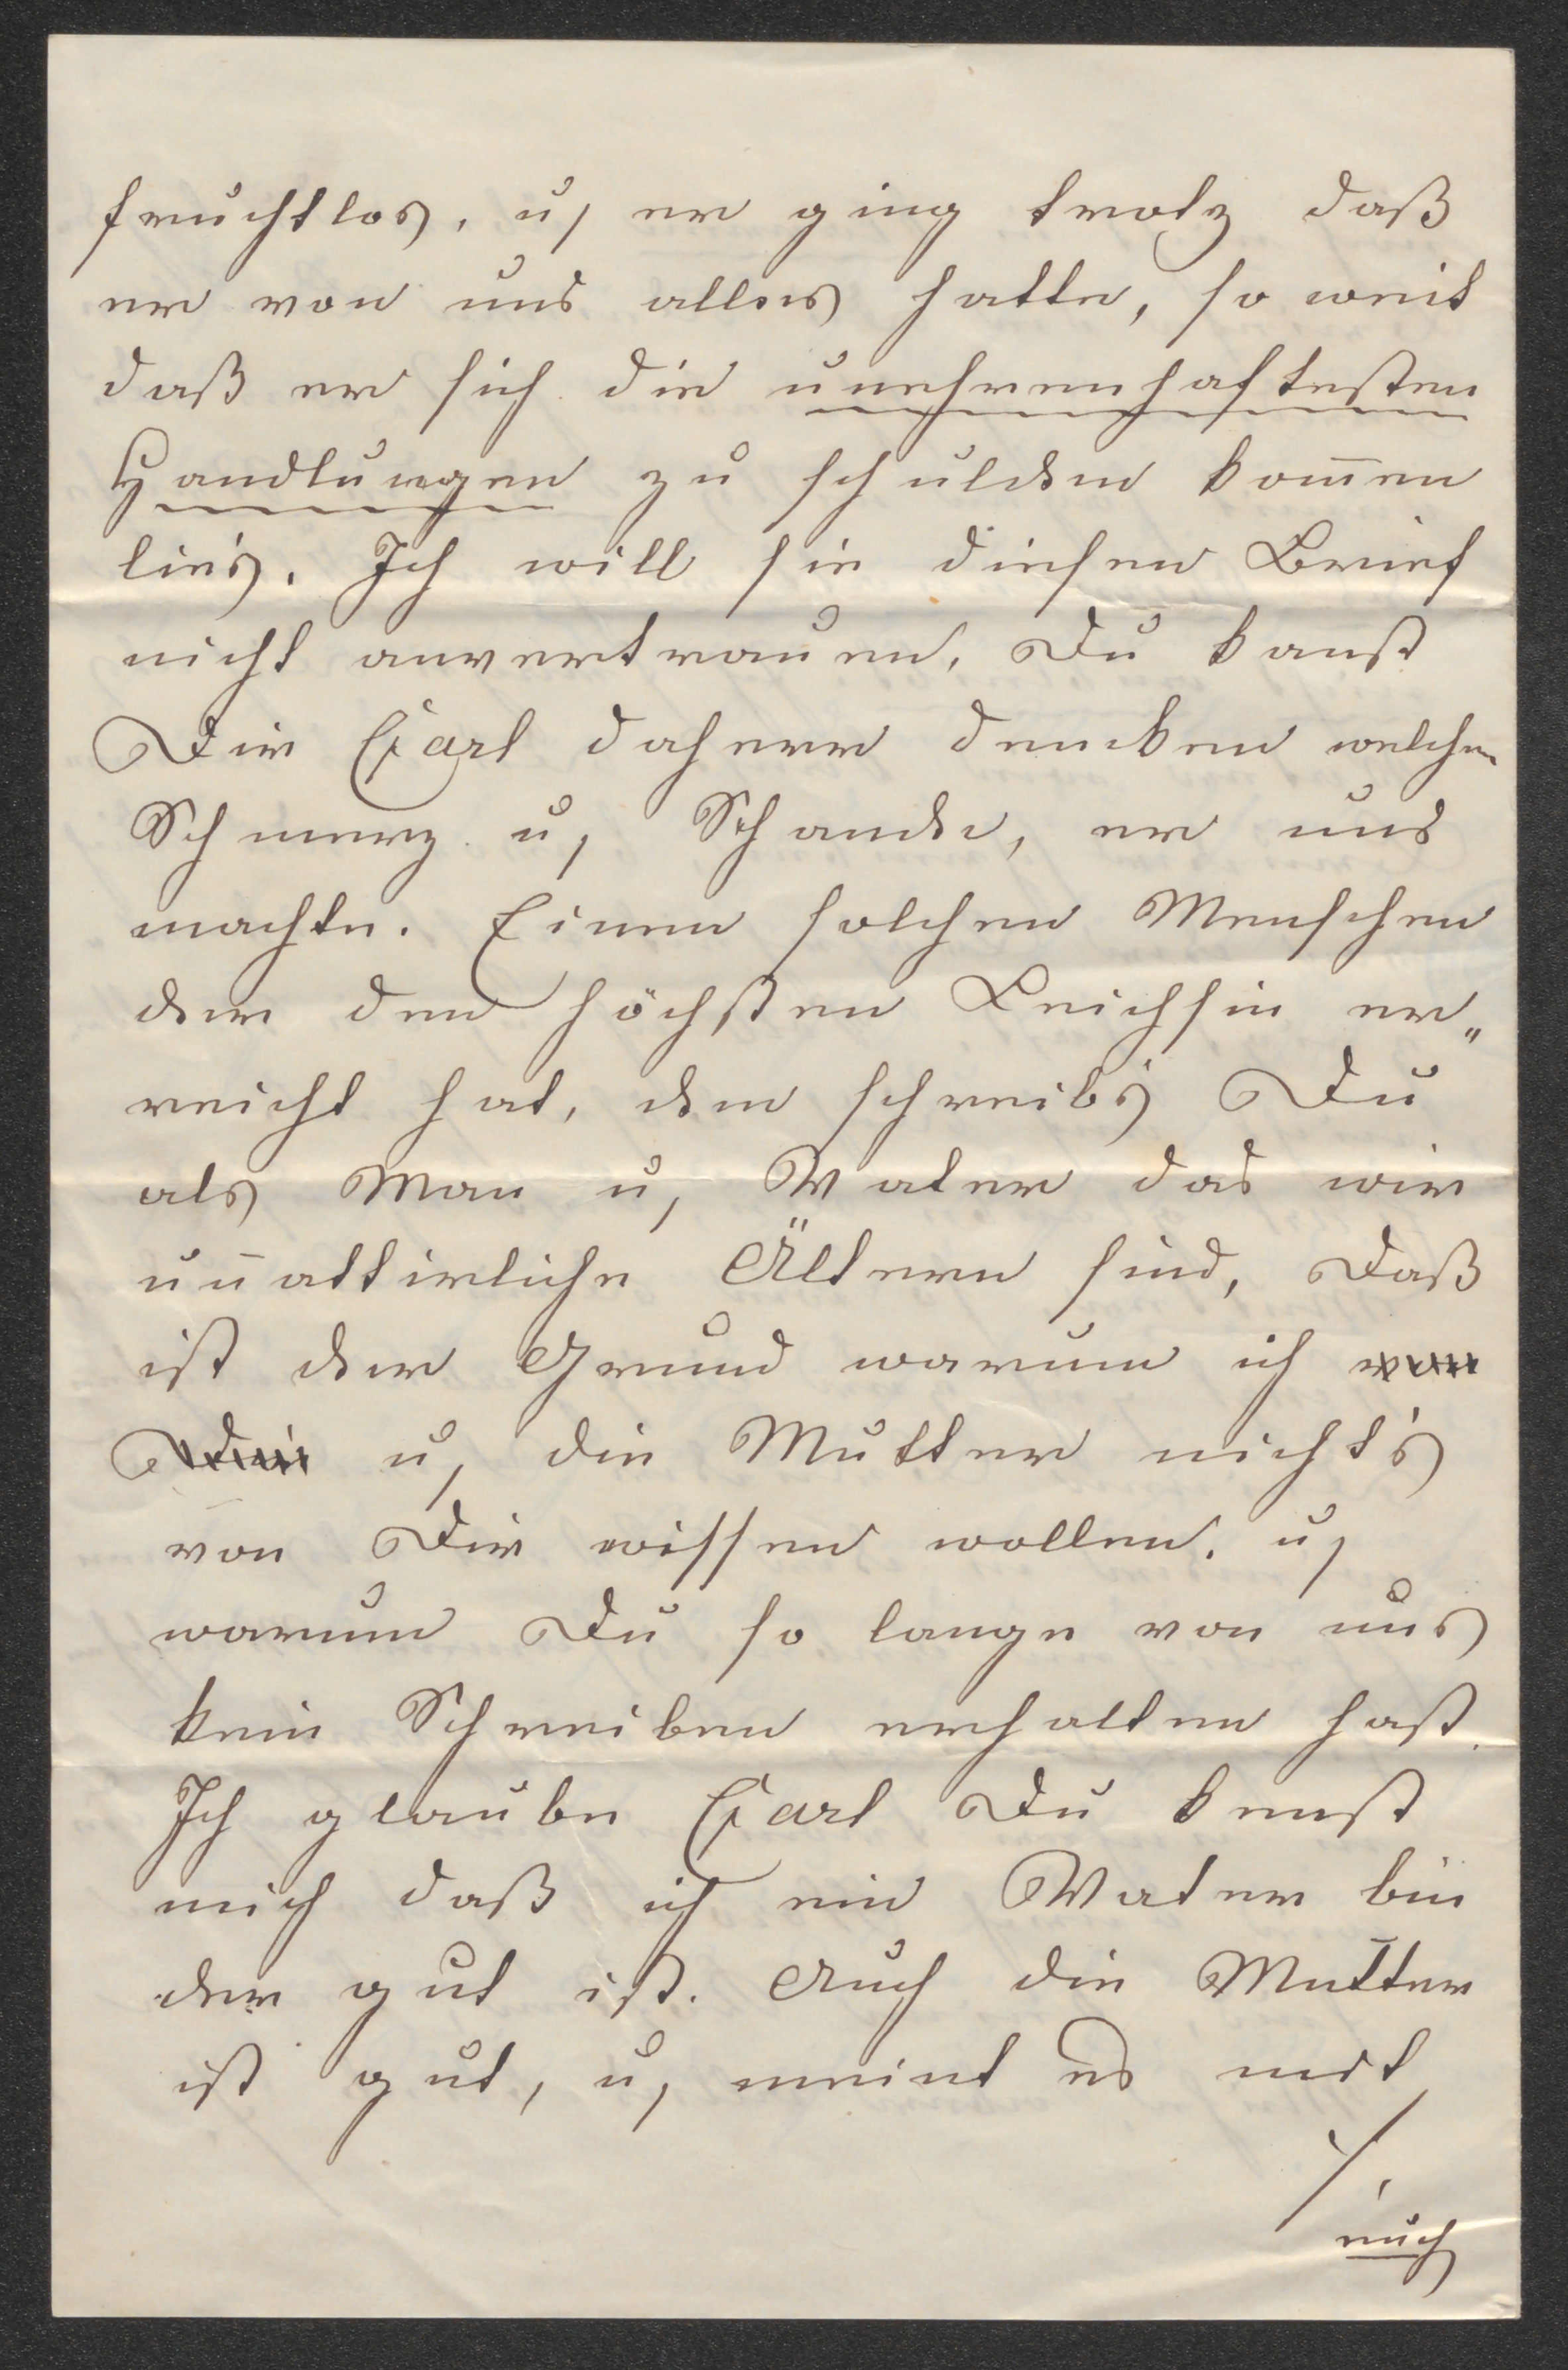 fruchtlos, u, er ging trotz daß
er von uns alles hatte, so weit
daß er sich die unehrenhaftesten
Handlungen zu schulden kom̄en
lies. Ich will sie diesen Brief
nicht anvertrauen, Du kanst
Dir Carl daherr dencken welchen
Schmerz u, Schande, er uns
machte. Einen solchen Menschen
der den höchsten Leichsin er„
reicht hat, dem schreibs Du
als Man u, Vater das wir
un̄attirliche Ältern sind, Daß
ist der Grund warum ich
u, die Mutter nicht's
von Dir wissen wollen, u,
warum Du so lange von uns
kein Schreiben erhalten hast.
Ich glaube Carl Du kenst
mich daß ich ein Vater bin
der gut ist. Auch die Mutter
ist gut, u, meint es mit
./.
euch